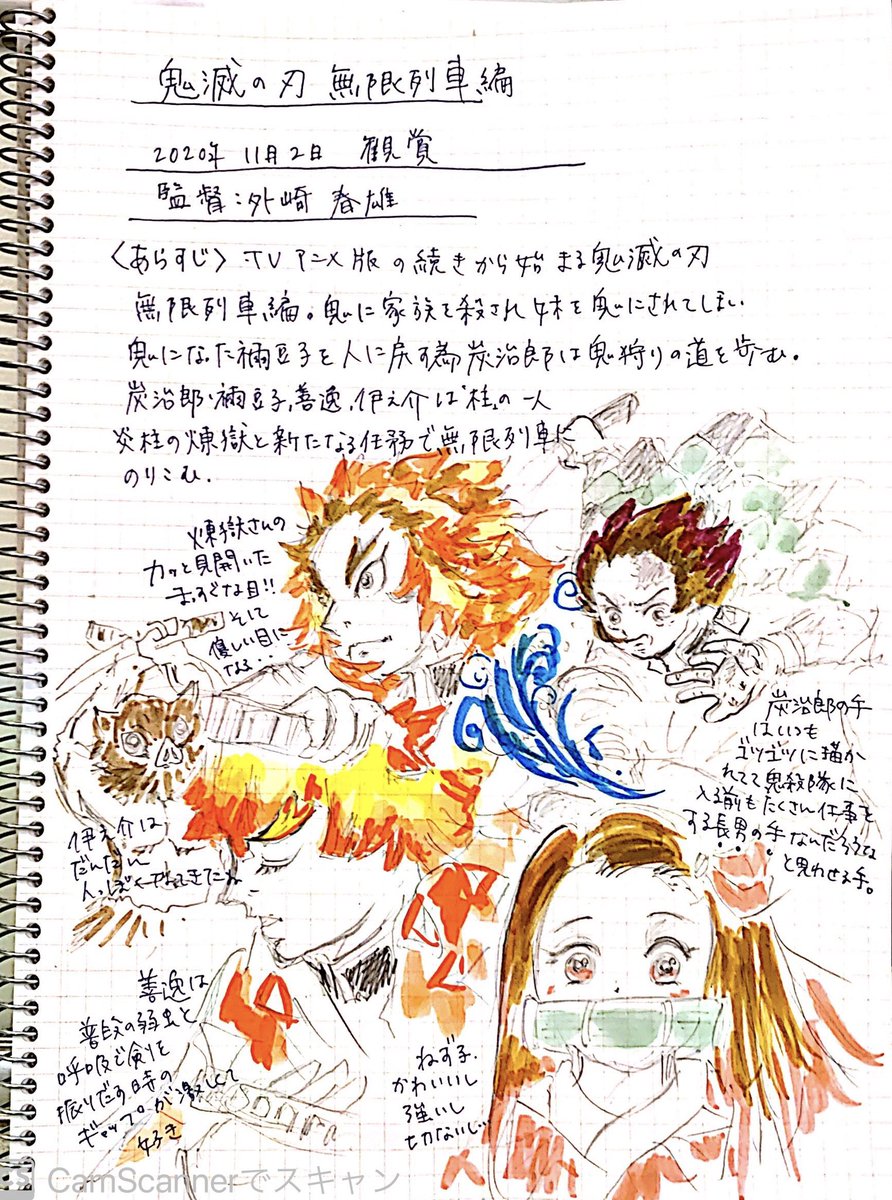 鬼滅の刃 無限列車編
2020年 11月2日 観賞
監督:外崎 春雄
〈あらすじ〉TVアニメ版の続きから始まる鬼滅の刃
無限列車編。鬼に家族を殺され妹を鬼にされてしまい
鬼になった禰豆子を人に戻す為炭治郎は鬼狩りの道を歩む。
炭治郎、禰豆子、善逸、伊之介は"柱"の一人
炎柱の煉獄と新たなる任務で無限列車に
のりこむ。
煉獄さんの
カッと見開いた
まっすぐな目!!
そして
優しい目に
なる・・
炭治郎の手
はいつも
ゴツゴツに描か
れてて鬼殺隊に
入る前もたくさん仕事を
する長男の手なんだろうな
と思わせる手。
伊之介は
だんだん
人っぽくなってきたね
善逸は
普段の弱虫と
呼吸で剣を
振りだす時の
ギャップが激しくて
好き
ねず子、
かわいいし
強いし
切ないし…
CamScannerでスキャン